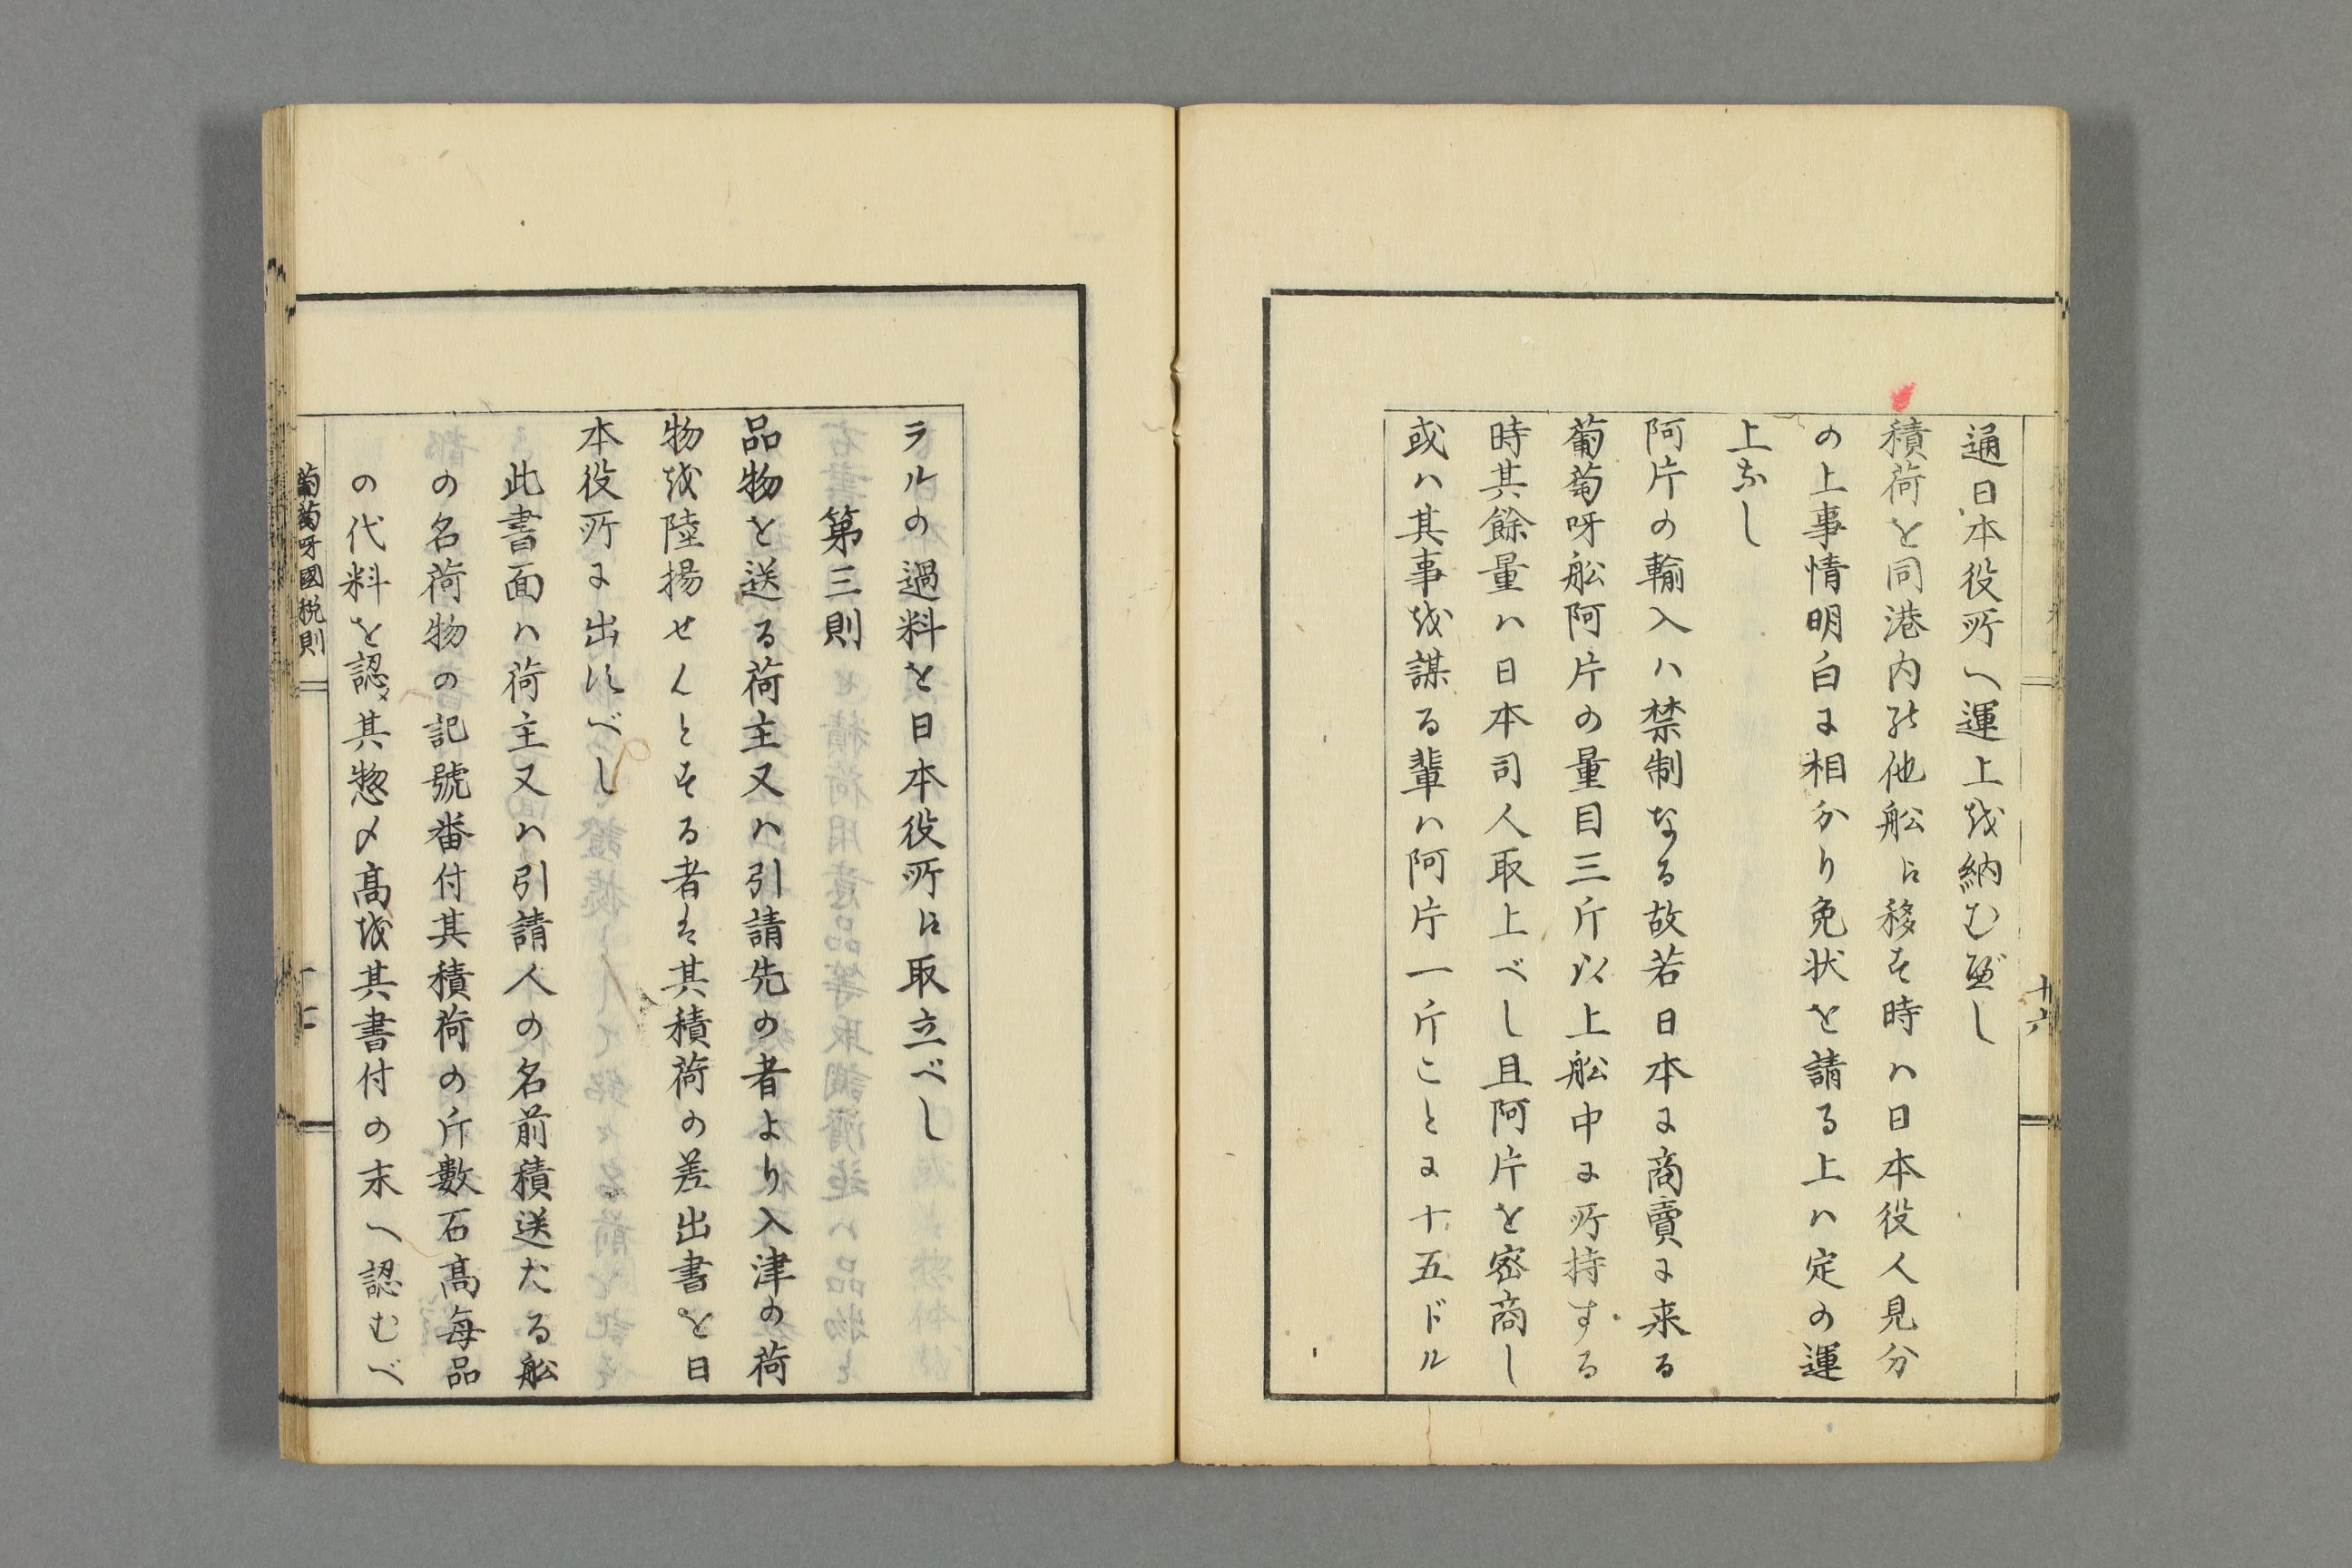 通日本役所へ運上越納む遍し
積荷を同港内能他舩に移す時ハ日本役人見分
の上事情明白に相分り免状を請る上ハ定の運
上なし
阿片の輸入ハ禁制なる故若日本に商賣に来る
葡萄呀舩阿片の量目三斤以上舩中に所持する
時其餘量ハ日本司人取上べし且阿片を密商し
或ハ其事越謀る輩ハ阿片一斤ことに十五ドル
十六
ラルの過料を日本役所に取立べし
第三則
品物を送る荷主又ハ引請先の者より入津の荷
物越陸揚せんとする者は其積荷の差出書を日
本役所に出すべし
此書面ハ荷主又ハ引請人の名前積送たる舩
の名荷物の記號番付其積荷の斤數石高毎品
の代料を認メ其惣〆高越其書付の末へ認むべ
葡萄呀國税則